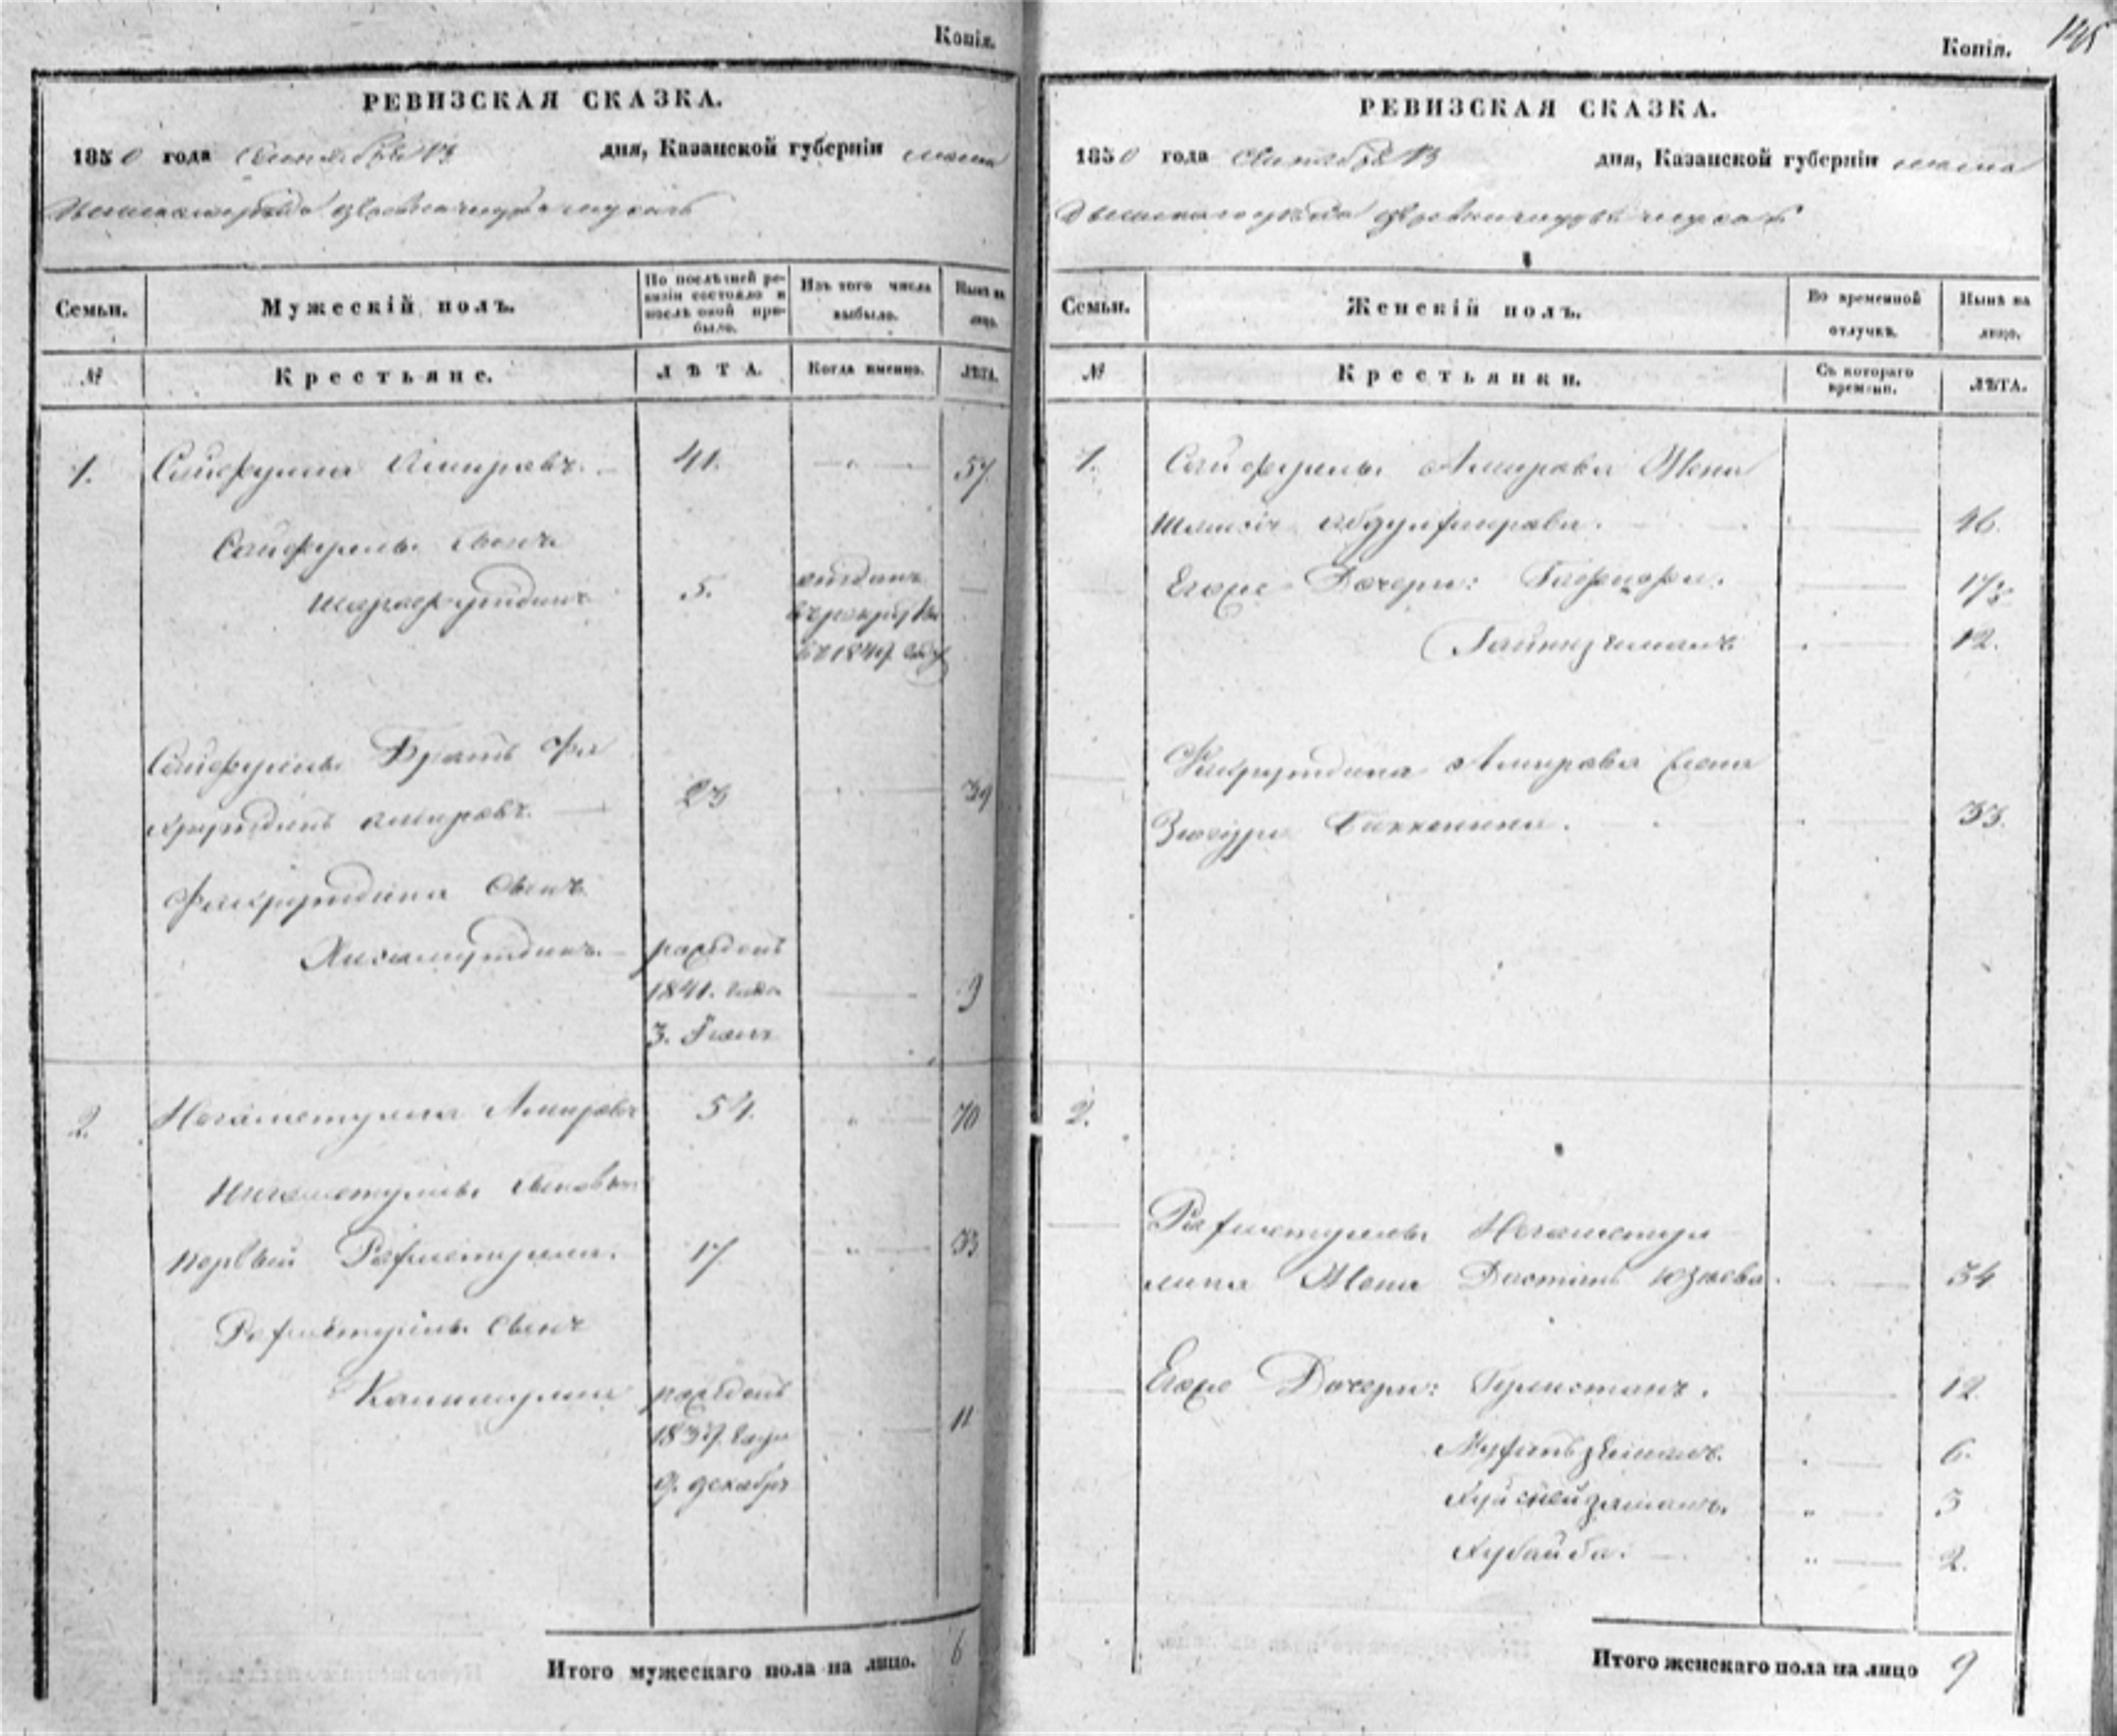 Копія.
РЕВИЗСКАЯ СКАЗКА.
1850 года Сентября 13 дня, Казанской губерніи мама
дышскаго уѣзда деревни
Семьи.
Мужескій полъ.
По послѣдней ревизіи состояло и послѣ оной прибыло.
Изъ того числа выбыло.
Нынѣ на лицо.
№
Крестьяне.
ЛѢТА.
Когда именно.
ЛѢТА.
1. Сайфулла Амировъ. 41. 57
Сайфуллы Сынъ
Шарафутдинъ 5. отданъ
въ рекруты
въ 1849 году
Сайфуллы Братъ Фа
хрутдинъ Амировъ. 23 39
Фахрутдина Сынъ
Хисамутдинъ. рожденъ
1841. года 9
3. Іюля
2. Негаметулла Амировъ 54. 70
Нигаметуллы Сыновья
первый Рафметулла. 17 33
Рафметуллы Сынъ
рожденъ
1839 году 11
9. декабря
Итого мужескаго пола на лицо. 6
Копія. 145
РЕВИЗСКАЯ СКАЗКА.
1850 года Сентября 13 дня, Казанской губерніи мама
дышскаго уѣзда деревни
Семьи.
Женскій полъ.
Во временной отлучкѣ.
Нынѣ на лицо.
№
Крестьянки.
Съ котораго времени.
ЛѢТА.
1. Сайфуллы Амирова Жена
46.
Егоже Дочери: 17
12.
Фахрутдина Амирова Жена
33.
2.
Рафметуллы Негаметул
лина Жена 34
Егоже Дочери: Гулистанъ. 12
6.
3
Хубайба. 2.
Итого женскаго пола на лицо 9